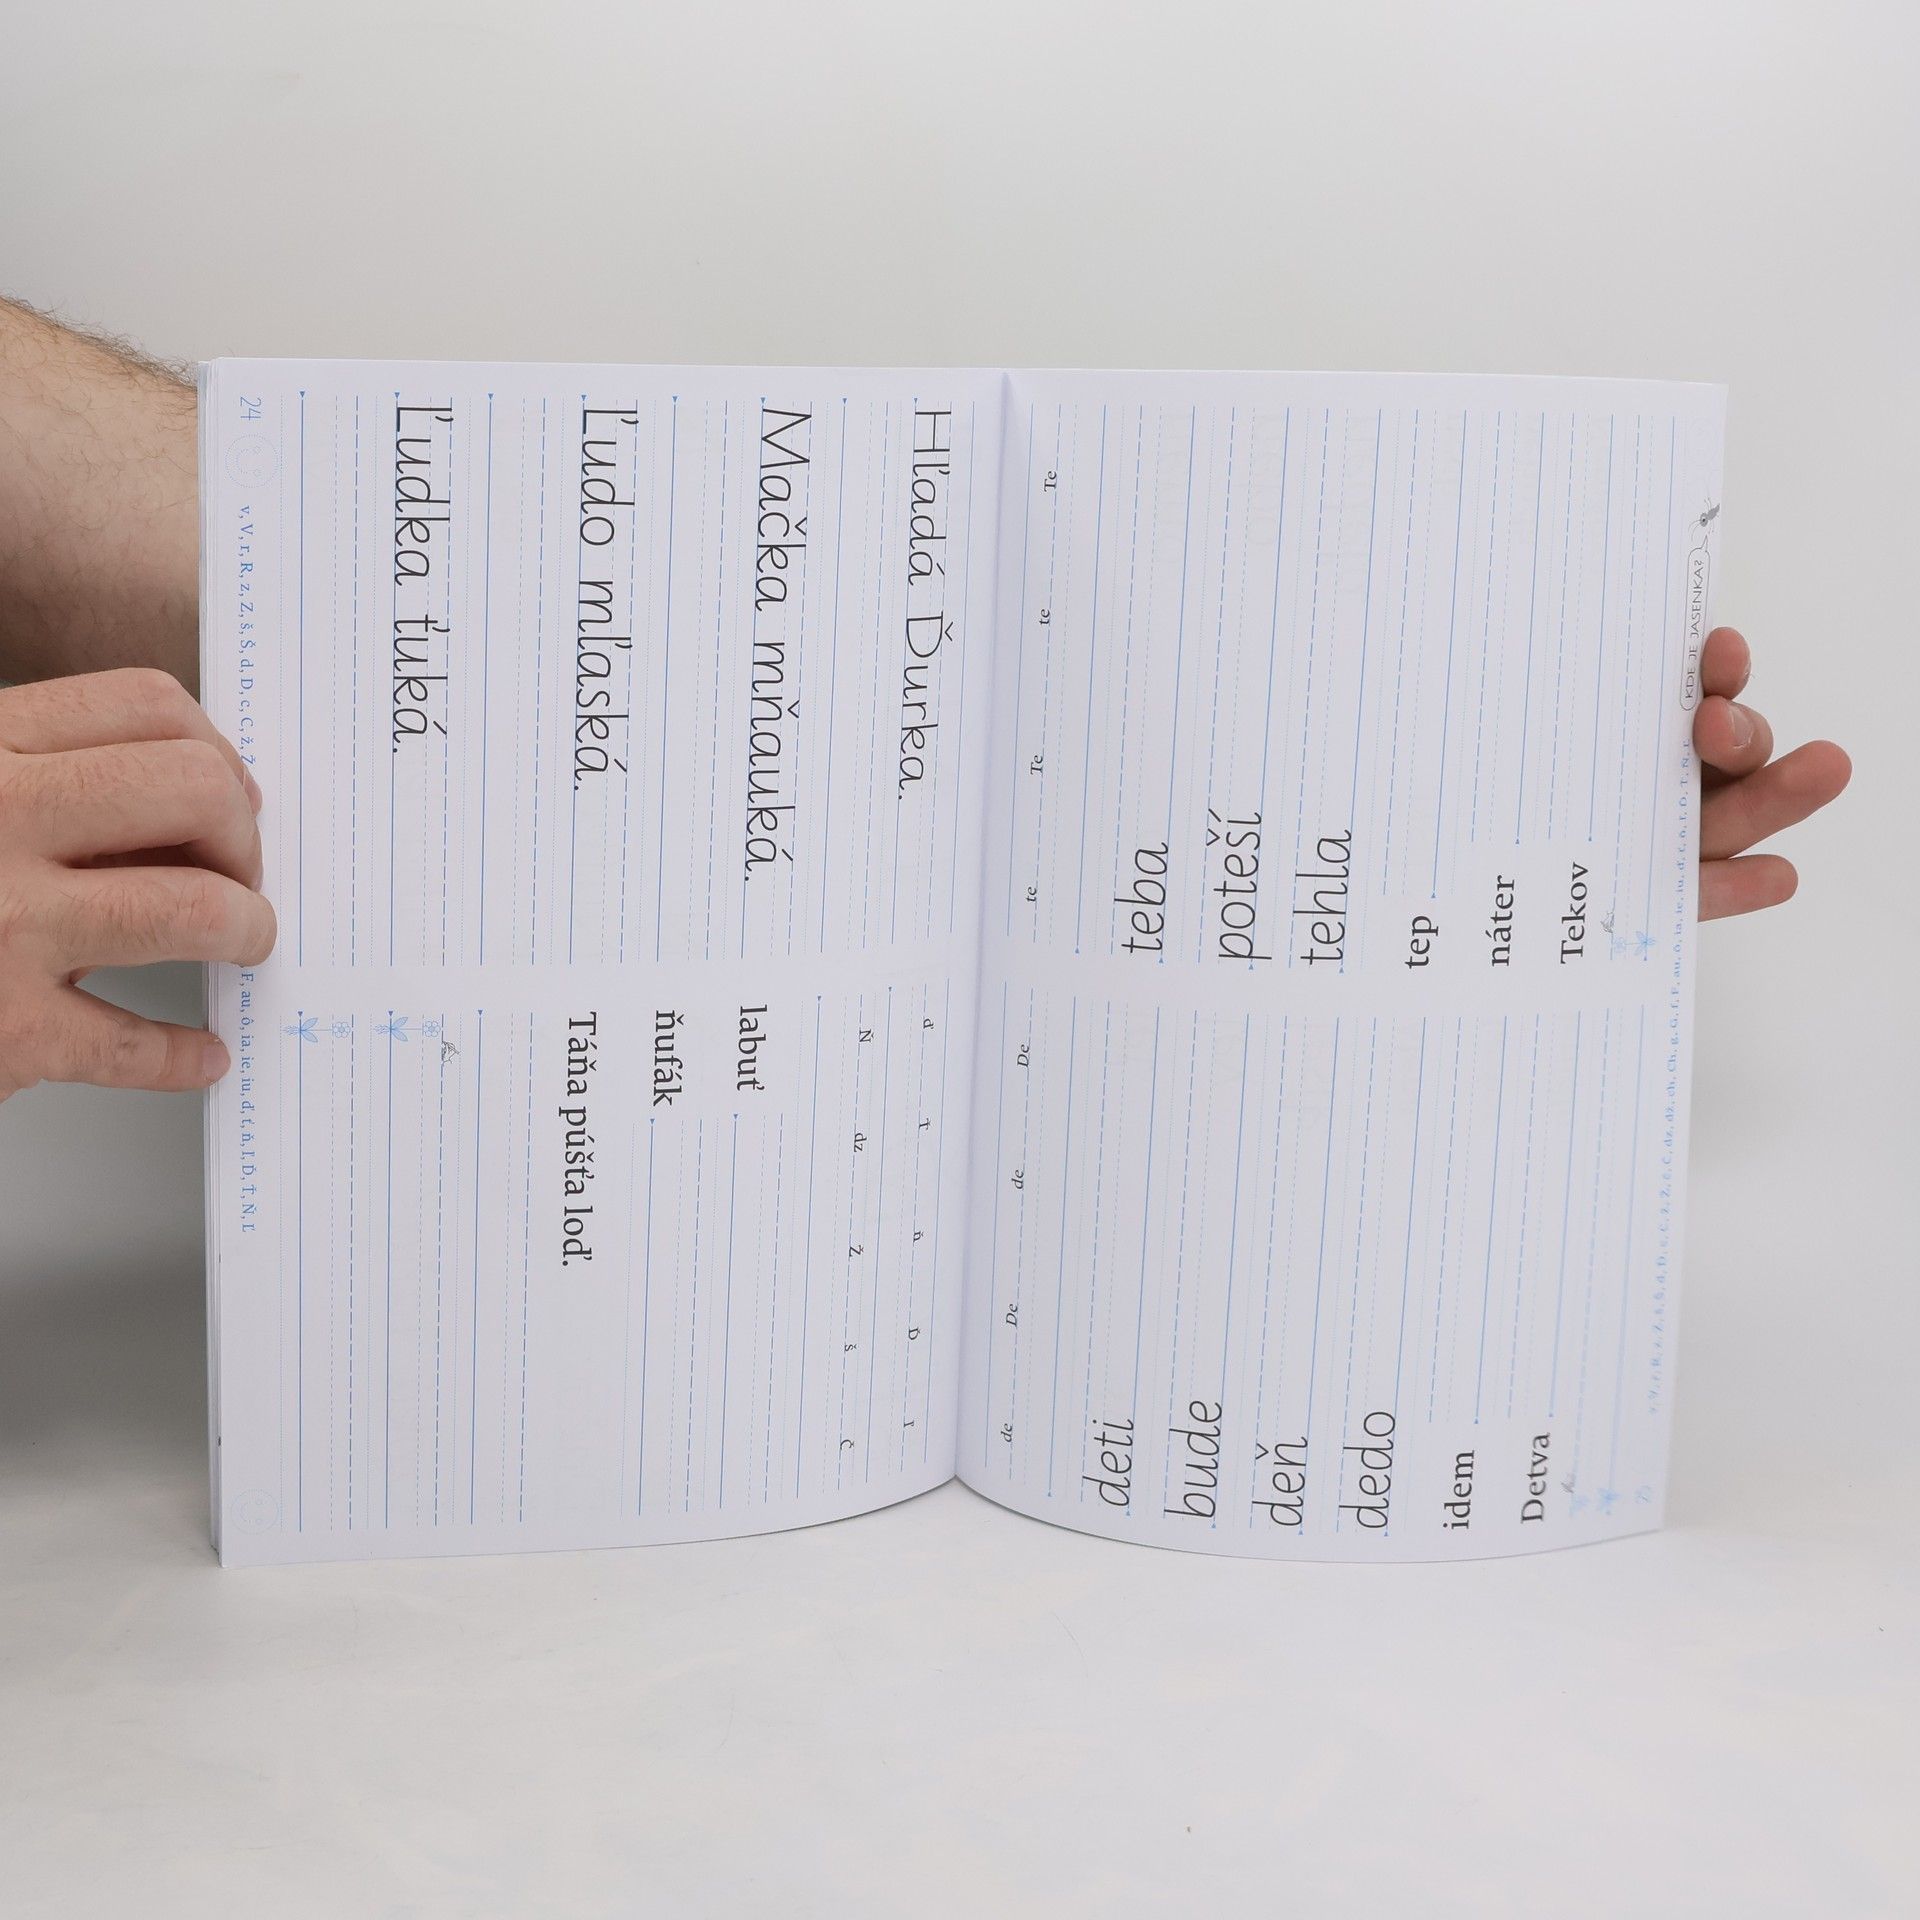 Hľadá Ďurka.
Mačka mňauká.
Ľudo mľaská.
Ľudka ťuká.
ď Ť ň Ď ľ
Ň dz Ž Š Č
labuť
ňufák
Táňa púšťa loď.
24 v, V, r, R, z, Z, š, Š, d, D, c, C, ž, Ž F, au, ô, ia, ie, iu, ď, ť, ň, ľ, Ď, Ť, Ň, Ľ
de De de De te Te te Te
deti
bude
deň
dedo
idem
Detva
teba
poteší
tehla
tep
náter
Tekov
25
KDE JE JASENKA?